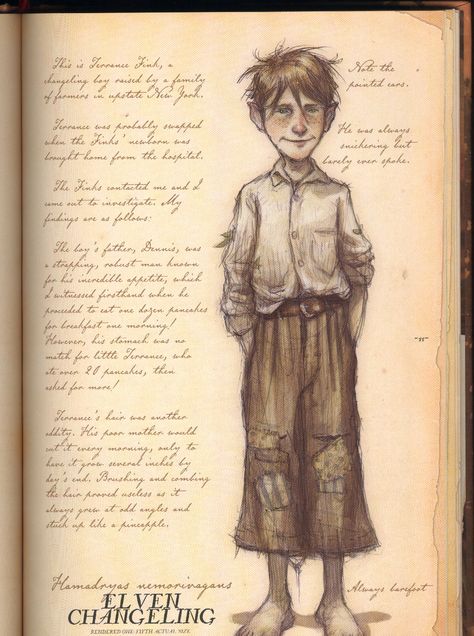 This is Terrance Fink, a
changeling boy raised by a family
of farmers in upstate New York.
Terrance was probably swapped
when the Finks' newborn was
brought home from the hospital.
The Finks contacted me and I
came out to investigate. My
findings are as follows:
The boy's father, Dennis, was
a strapping, robust man known
for his incredible appetite, which
I witnessed firsthand when he
proceeded to eat one dozen pancakes
for breakfast one morning!
However, his stomach was no
match for little Terrance, who
ate over 20 pancakes, then
asked for more!
Terrance's hair was another
oddity. His poor mother would
cut it every morning, only to
have it grow several inches by
day's end. Brushing and combing
the hair proved useless as it
always grew at odd angles and
stuck up like a pineapple.
Note the
pointed ears.
He was always
snickering but
barely ever spoke.
Always barefoot
Hamadryas nemorivagans
ELVEN
CHANGELING
RENDERED ONE-FIFTH ACTUAL SIZE